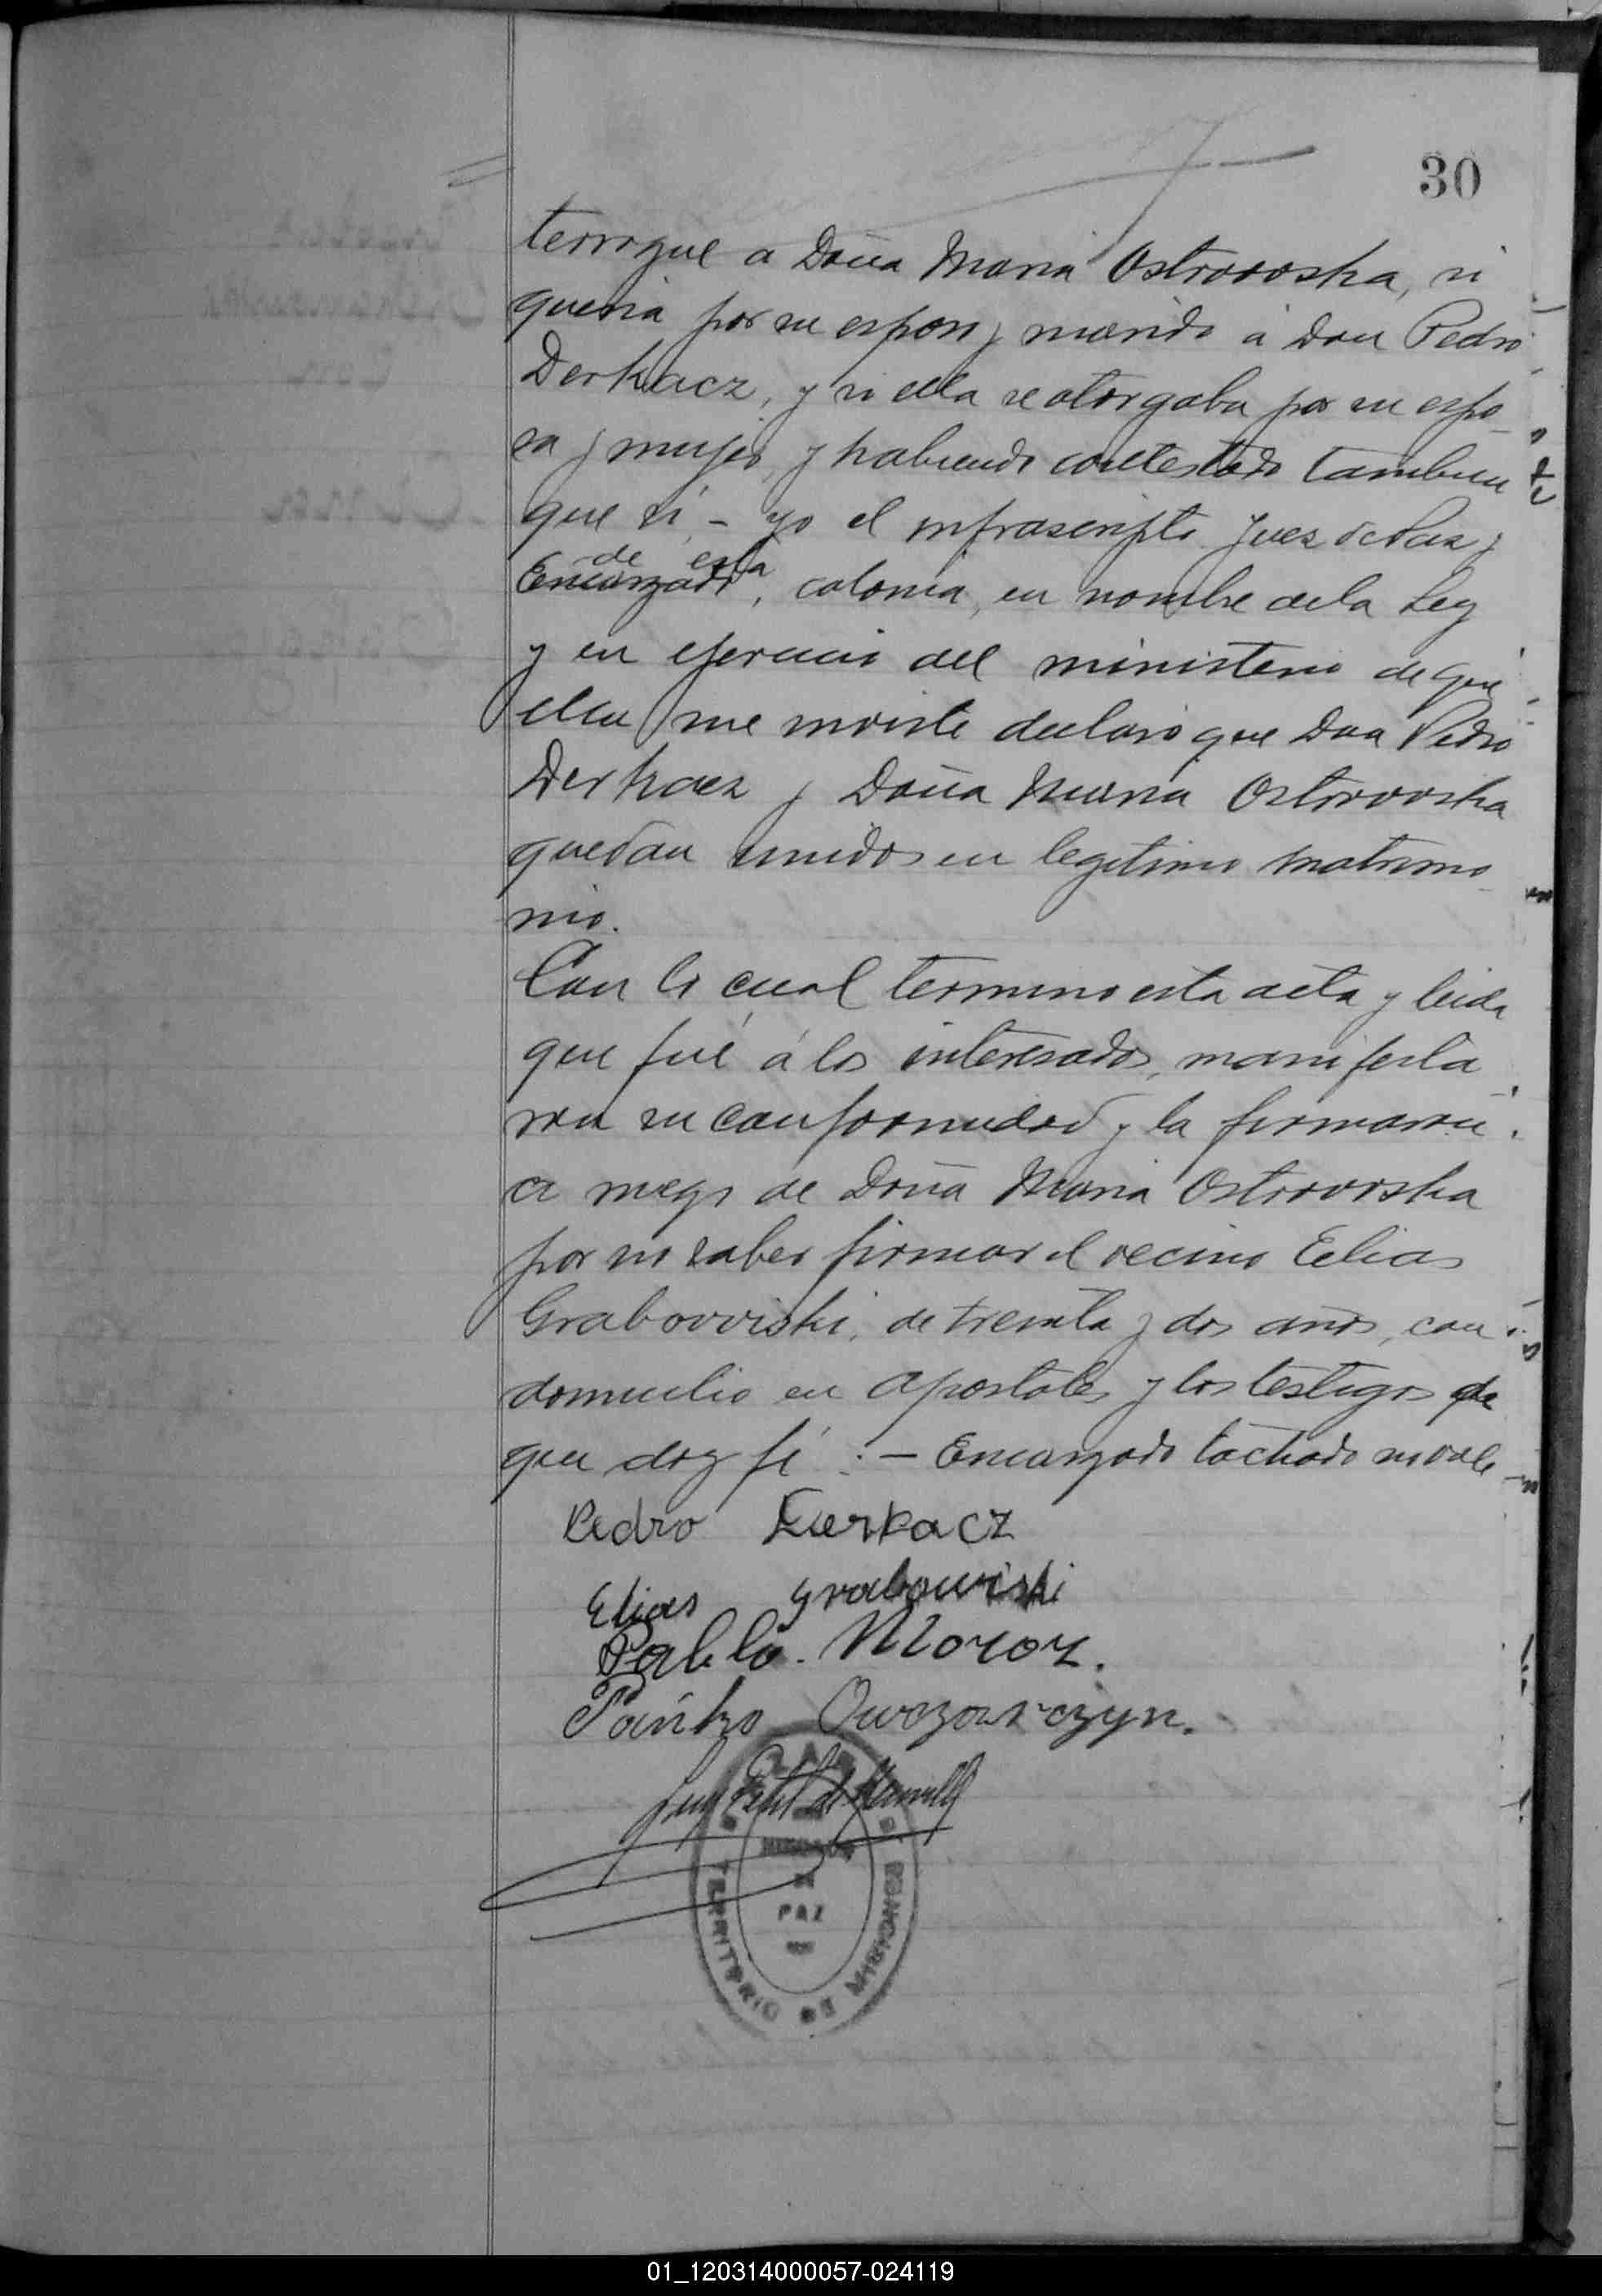 30
terrogue a Doña Maria Ostrowska, si
queria por su esposo y marido á Don Pedro
Derkacz, y si ella se otorgaba por su espo_
sa y mujer, y habiendo contestado tambien
que si, - yo el infrascripto Juez de Paz y
de esta
Encargado, colonia, en nombre de la Ley
y en ejercicio del ministerio de que
ella me inviste declaro que Don Pedro
Derkacz y Doña Maria Ostrowska
quedan unidos en legitimo matrimo_
nio.
Con lo cual termino esta acta y leida
que fué á los interesados, manifesta
ron su conformidad y la firmaron
a ruego de Doña Maria Ostrowska
por no saber firmar el vecino Elias
Grabowiski, de treinta y dos años, con
domicilio en Apostoles y los testigos de
que doy fé :- Encargado tachado no vale
Pedro Derkacz
Elias Grabowiski
Pablo. Moroz.
Pańko Owczarczyn.
PAZ
TERRITORIO DE MISIONES
01_120314000057-024119